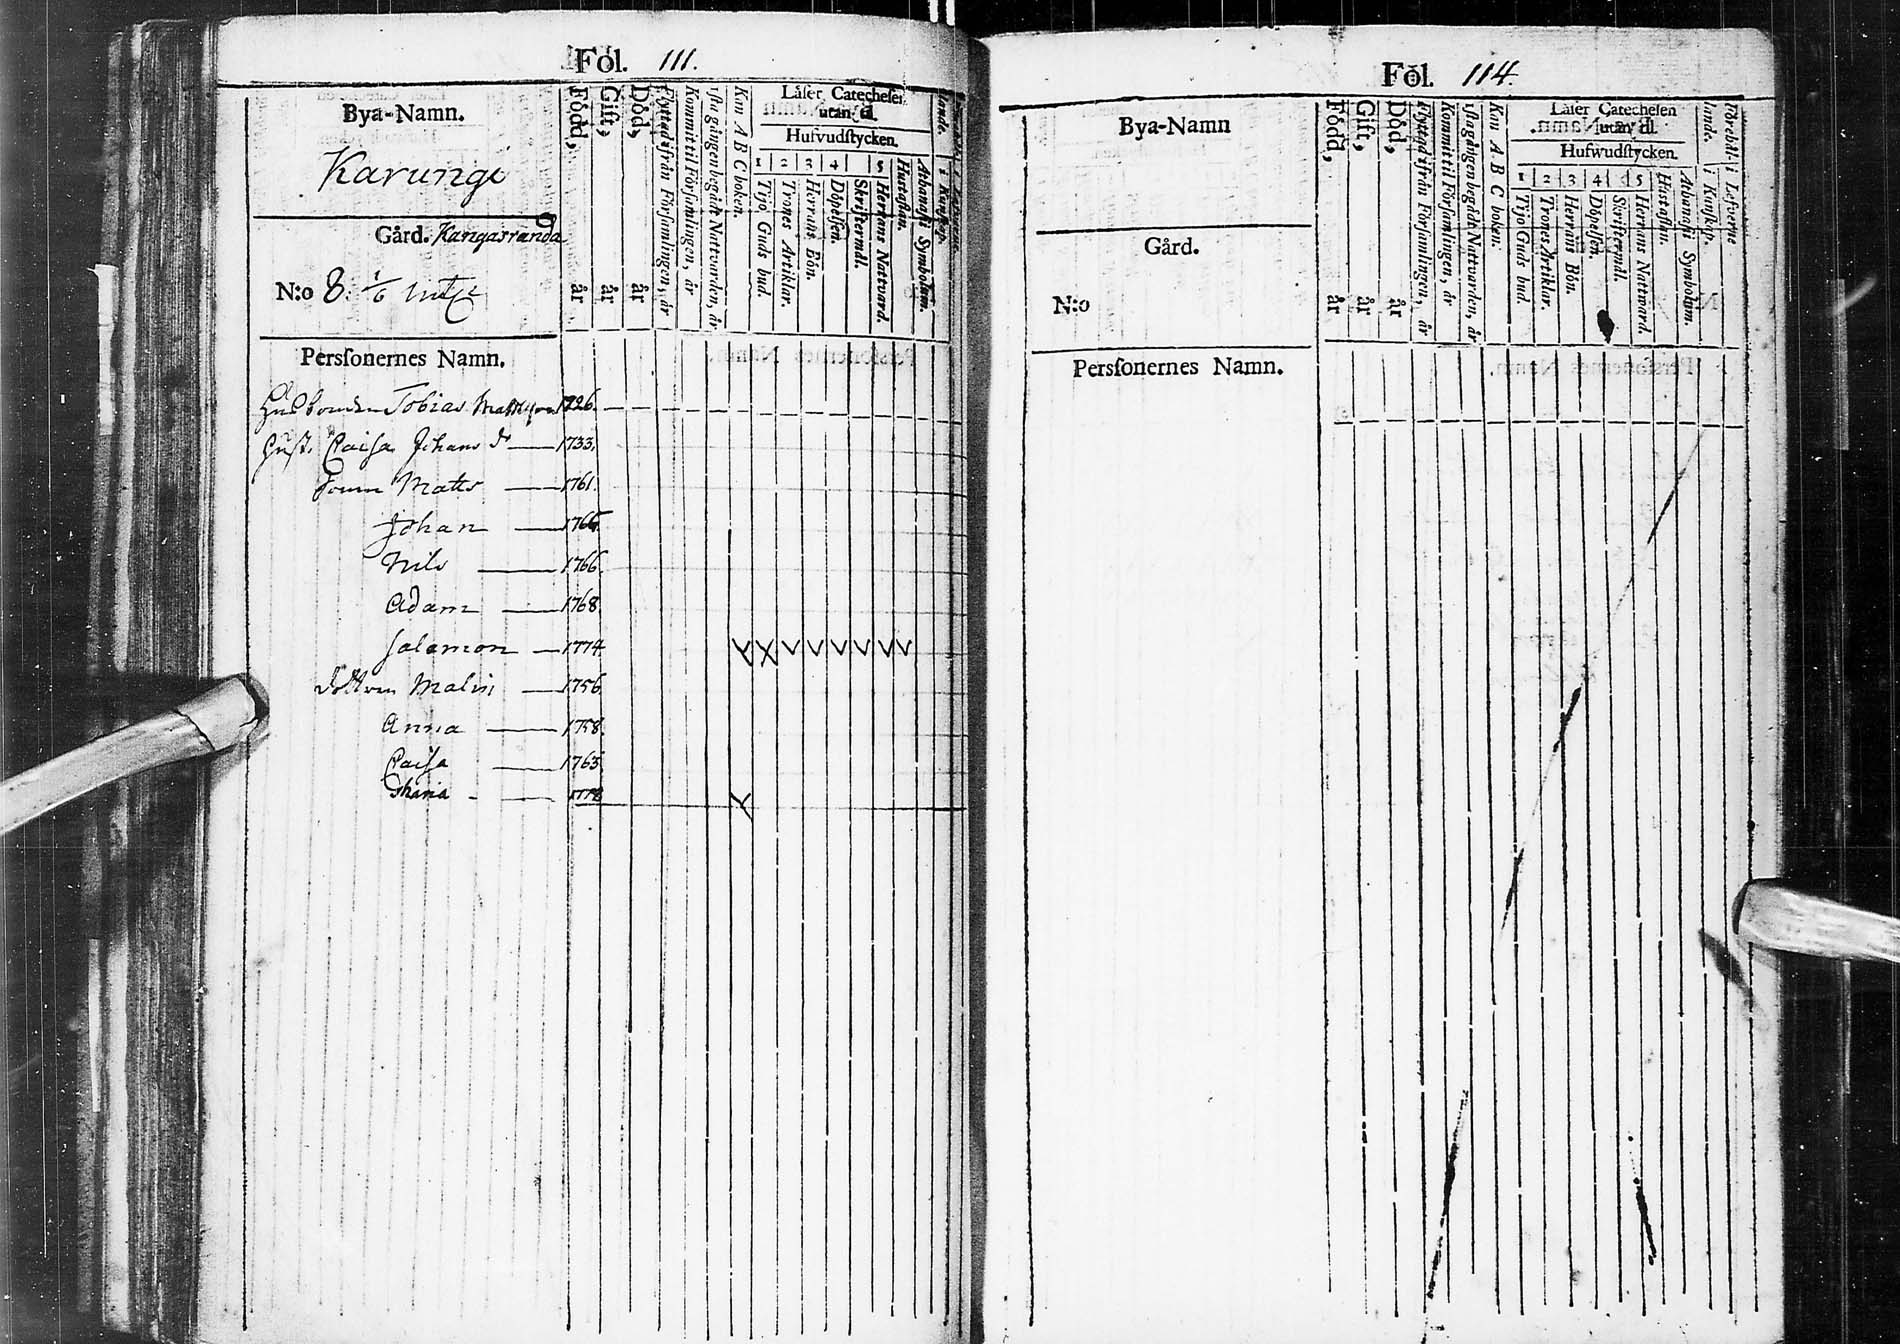 Fol. 111.
Bya-Namn.
Karungi
Gård. Kangasranda
N:o 8.
Född, år
Gift, år
Död, år
Flyttad ifrån Församlingen, år
Kommit til Församlingen, år
1sta gången begådt Nattvarden, år
Kan A B C boken.
Läser Catechesen
utan til.
Hufvudstycken.
1 2 3 4 5
Tijo Guds bud.
Trones Artiklar.
Herrans Bön.
Döpelsen.
Skriftermål.
Herrans Nattvard.
Hustaflan.
Athanasii Symbolum.
Personernes Namn.
Husbonden Tobias Mattsson 1726.
Hust. Caisa Johans dr 1733.
Sonen Matts 1761.
Johan 1766
Nils 1766.
Adam 1768.
Salamon 1774
Dottren Malin 1756
Anna 1758.
Caisa 1763
Maria 1778
Fol. 114.
Bya-Namn
Gård.
N:o
Född, år
Gift, år
Död, år
Flyttad ifrån Församlingen, år
Kommit til Församlingen, år
1sta gången begådt Nattvarden, år
Kan A B C boken.
Läser Catechesen
utan til.
Hufwudstycken.
1 2 3 4 5
Tijo Guds bud.
Trones Artiklar.
Herrans Bön.
Döpelsen.
Skriftermål.
Herrans Nattward.
Hustaflan.
Athanasii Symbolum.
i Kunskap.
i Lefverne
Personernes Namn.